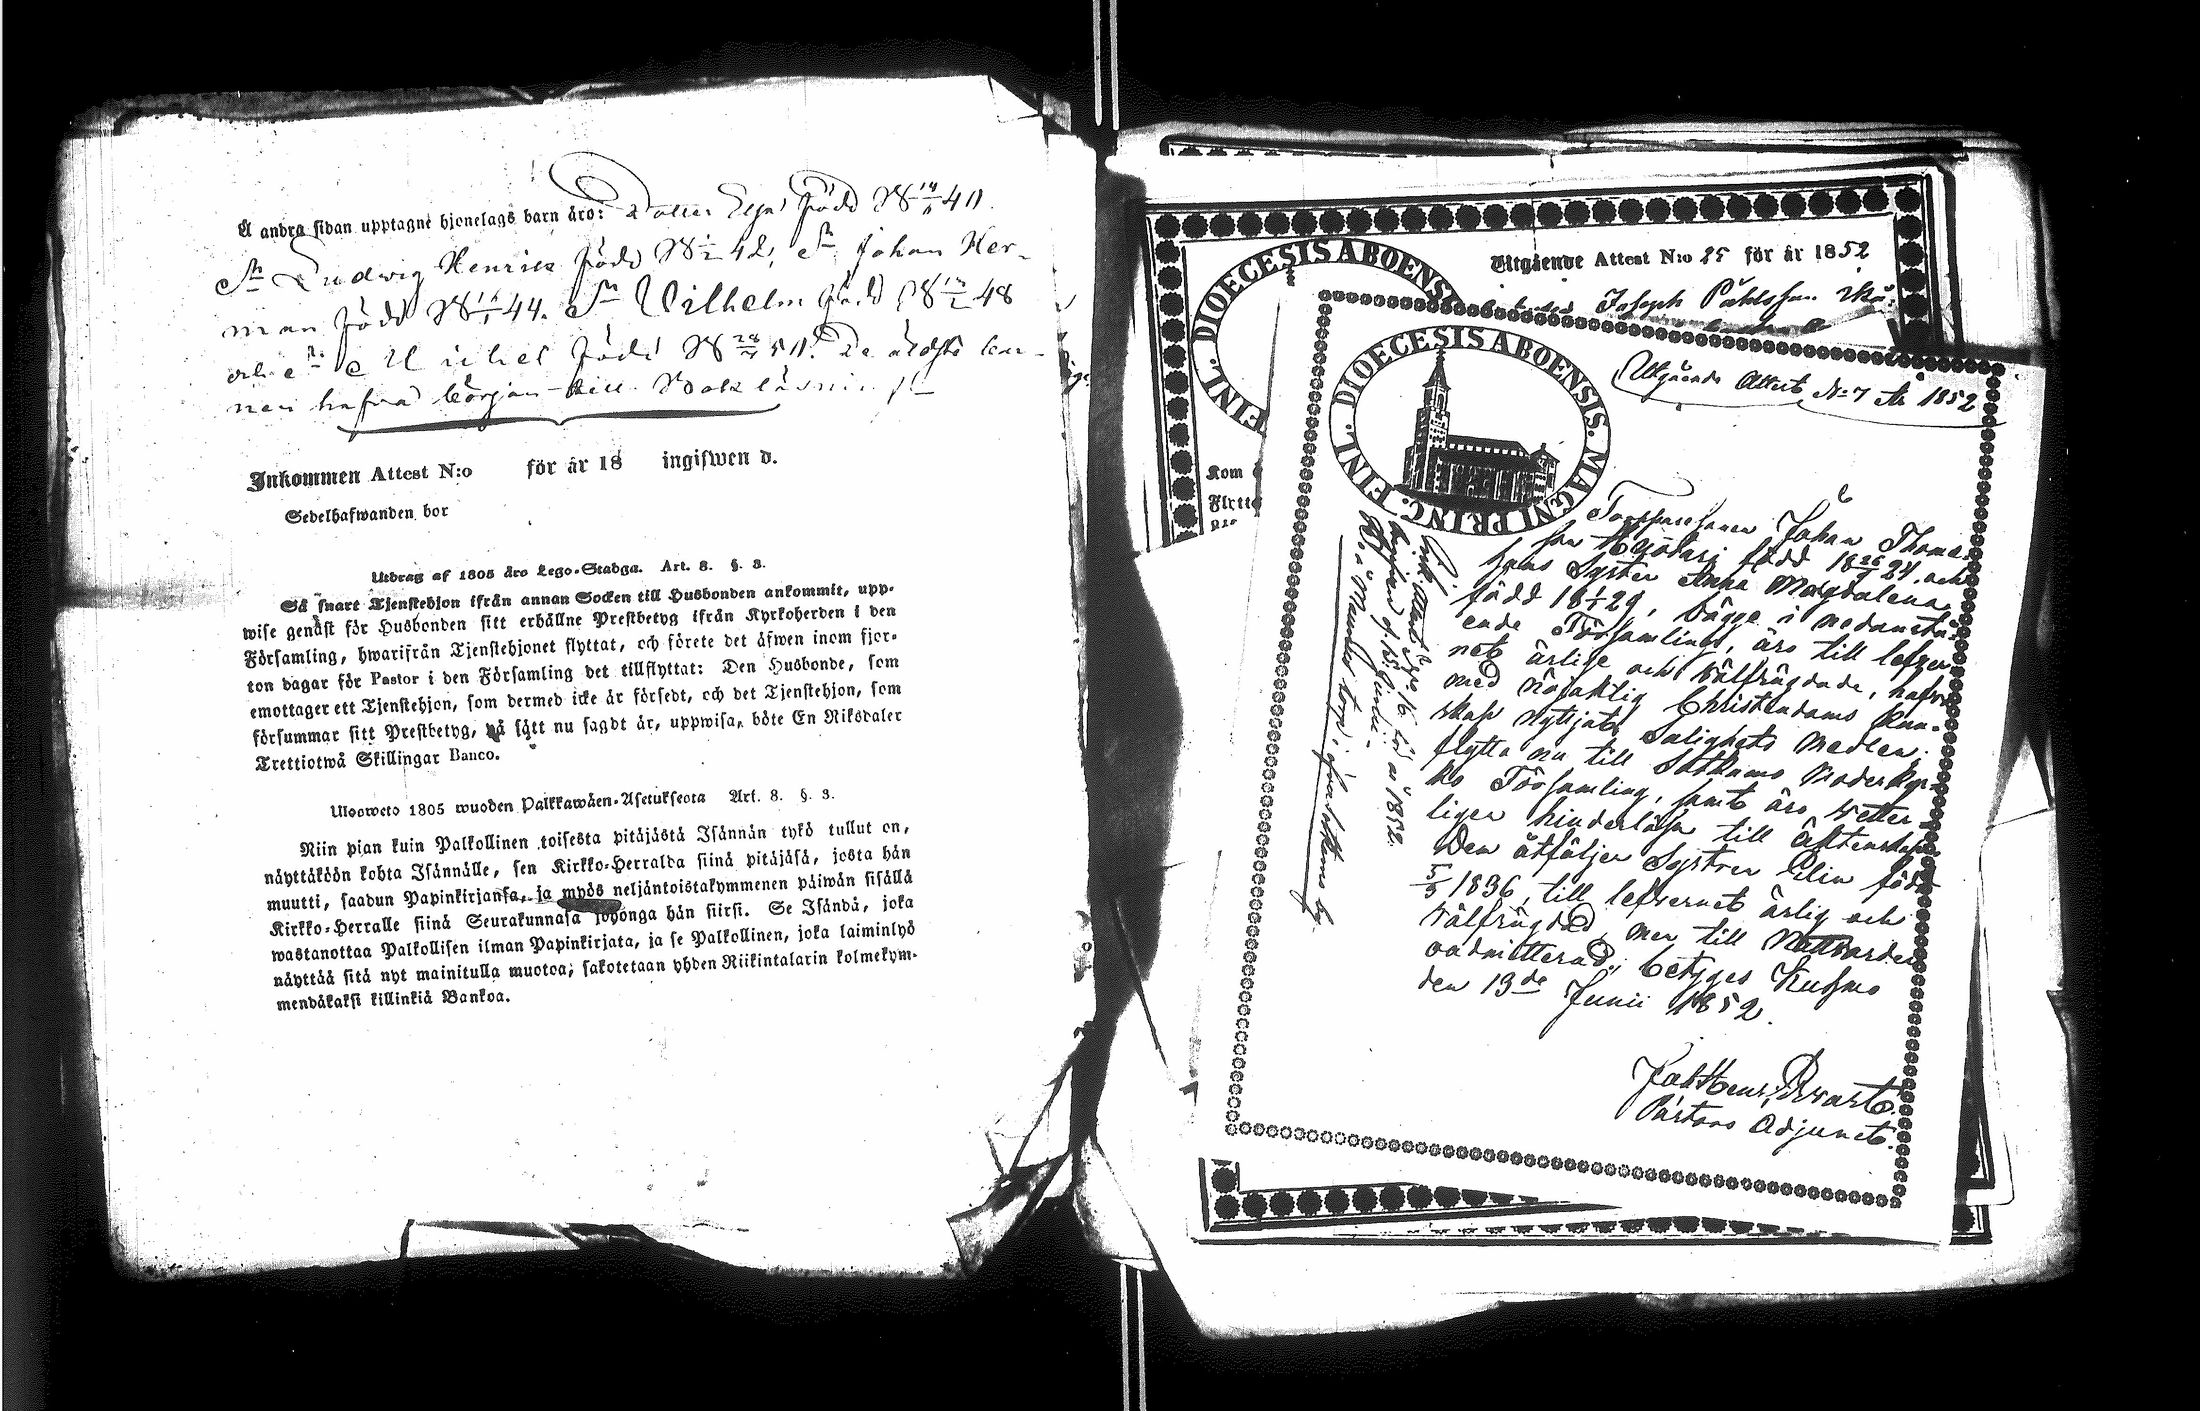 Å andra sidan upptagne hjonelags barn äro: Dotter född 18 40.
Sn Ludwig Henrik född 18 42, Sn Johan Her-
man född 18 44. Sn Wilhelm född 18 48
och Sn Michel född 18 50. De äldsta bar-
nen hafva början till Bokläsning
Inkommen Attest N:o för år 18 ingifwen d.
Sedelhafwanden bor
Utdrag af 1805 års Lego-Stadga. Art. 8. §. 3.
Så snart Tjenstehjon ifrån annan Socken till Husbonden ankommit, upp-
wise genast för Husbonden sitt erhållne Prestbetyg ifrån Kyrkoherden i den
Församling, hwarifrån Tjenstehjonet flyttat, och förete det äfwen inom fjor-
ton dagar för Pastor i den Församling det tillflyttat: Den Husbonde, som
emottager ett Tjenstehjon, som dermed icke är försedt, och det Tjenstehjon, som
försummar sitt Prestbetyg, på sätt nu sagdt är, uppwisa, böte En Riksdaler
Trettiotwå Skillingar Banco.
Ulosweto 1805 wuoden Palkkawäen-Asetuksesta Art. 8. §. 3.
Niin pian kuin Palkollinen toisesta pitäjästä Isännän tykö tullut on,
näyttäköön kohta Isännälle, sen Kirkko-Herralda siinä pitäjäsä, josta hän
muutti, saadun Papinkirjansa, ja myös neljäntoistakymmenen päiwän sisällä
Kirkko-Herralle siinä Seurakunnasa johonga hän siirsi. Se Isändä, joka
wastanottaa Palkollisen ilman Papinkirjata, ja se Palkollinen, joka laiminlyö
näyttää sitä nyt mainitulla muotoa, sakotetaan yhden Riikintalarin kolmekym-
mendäkaksi killinkiä Bankoa.
DIOECESIS ABOENSIS
FINL.
Utgående Attest N:o 25 för år 1852
Joseph Påhlsson
Kom
Flytte
DIOECESIS ABOENSIS. MAGNI PRINC. FINL.
Utgående Attest No 7 år 1852
Torpparesonen Johan Thomas-
son född 18 24, och
hans Syster Anna Magdalena
född 18 29, bägge i nedanstå-
ende Församling, äro till lefver-
net ärlige och välfrägdade, hafva
med nöjaktig Christendoms kun-
skap nyttjat Salighets medlen.
flytta nu till Sotkamo Moderkyr-
ko Församling, samt äro vetter-
ligen hinderlöse till äktenskap.
Den åtföljer Systren Elin född
5/5 1836, till lefvernet ärlig och
välfrägdad, men till Nattvarden
oadmitterad, betyges Kuhmo
den 13de Junii 1852.
Pastors Adjunct.
Ink. Attest N:o 16 för år 1852.